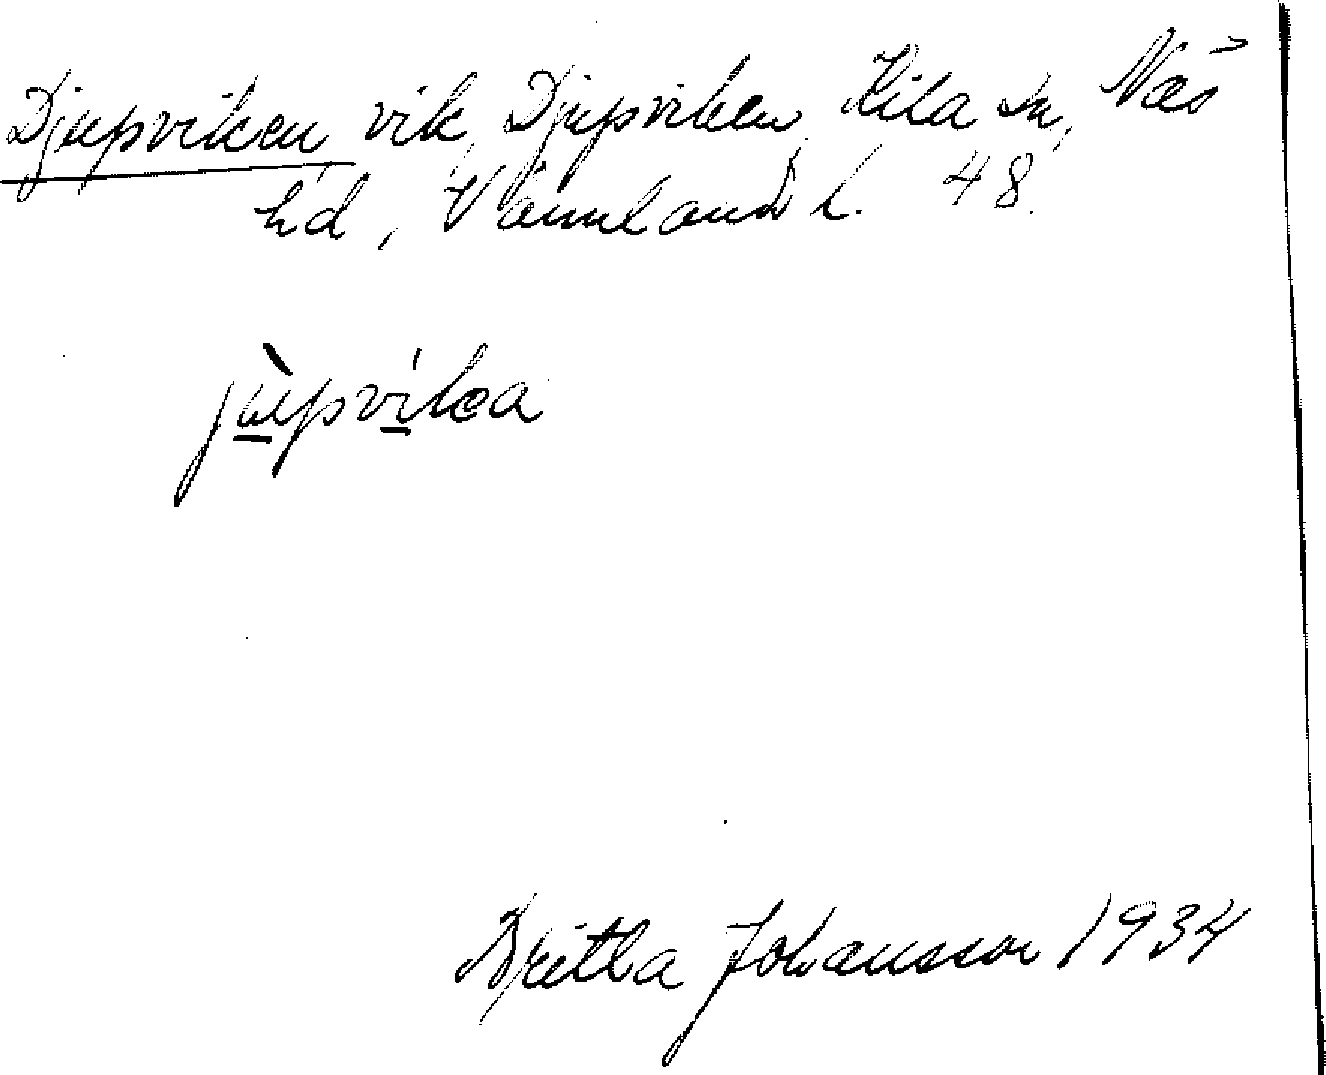 Djupviken vik, Djupviken, Kila sn, Näs
hd, Värmland l. 48.
jùpvíka
Britta Johansson 1934